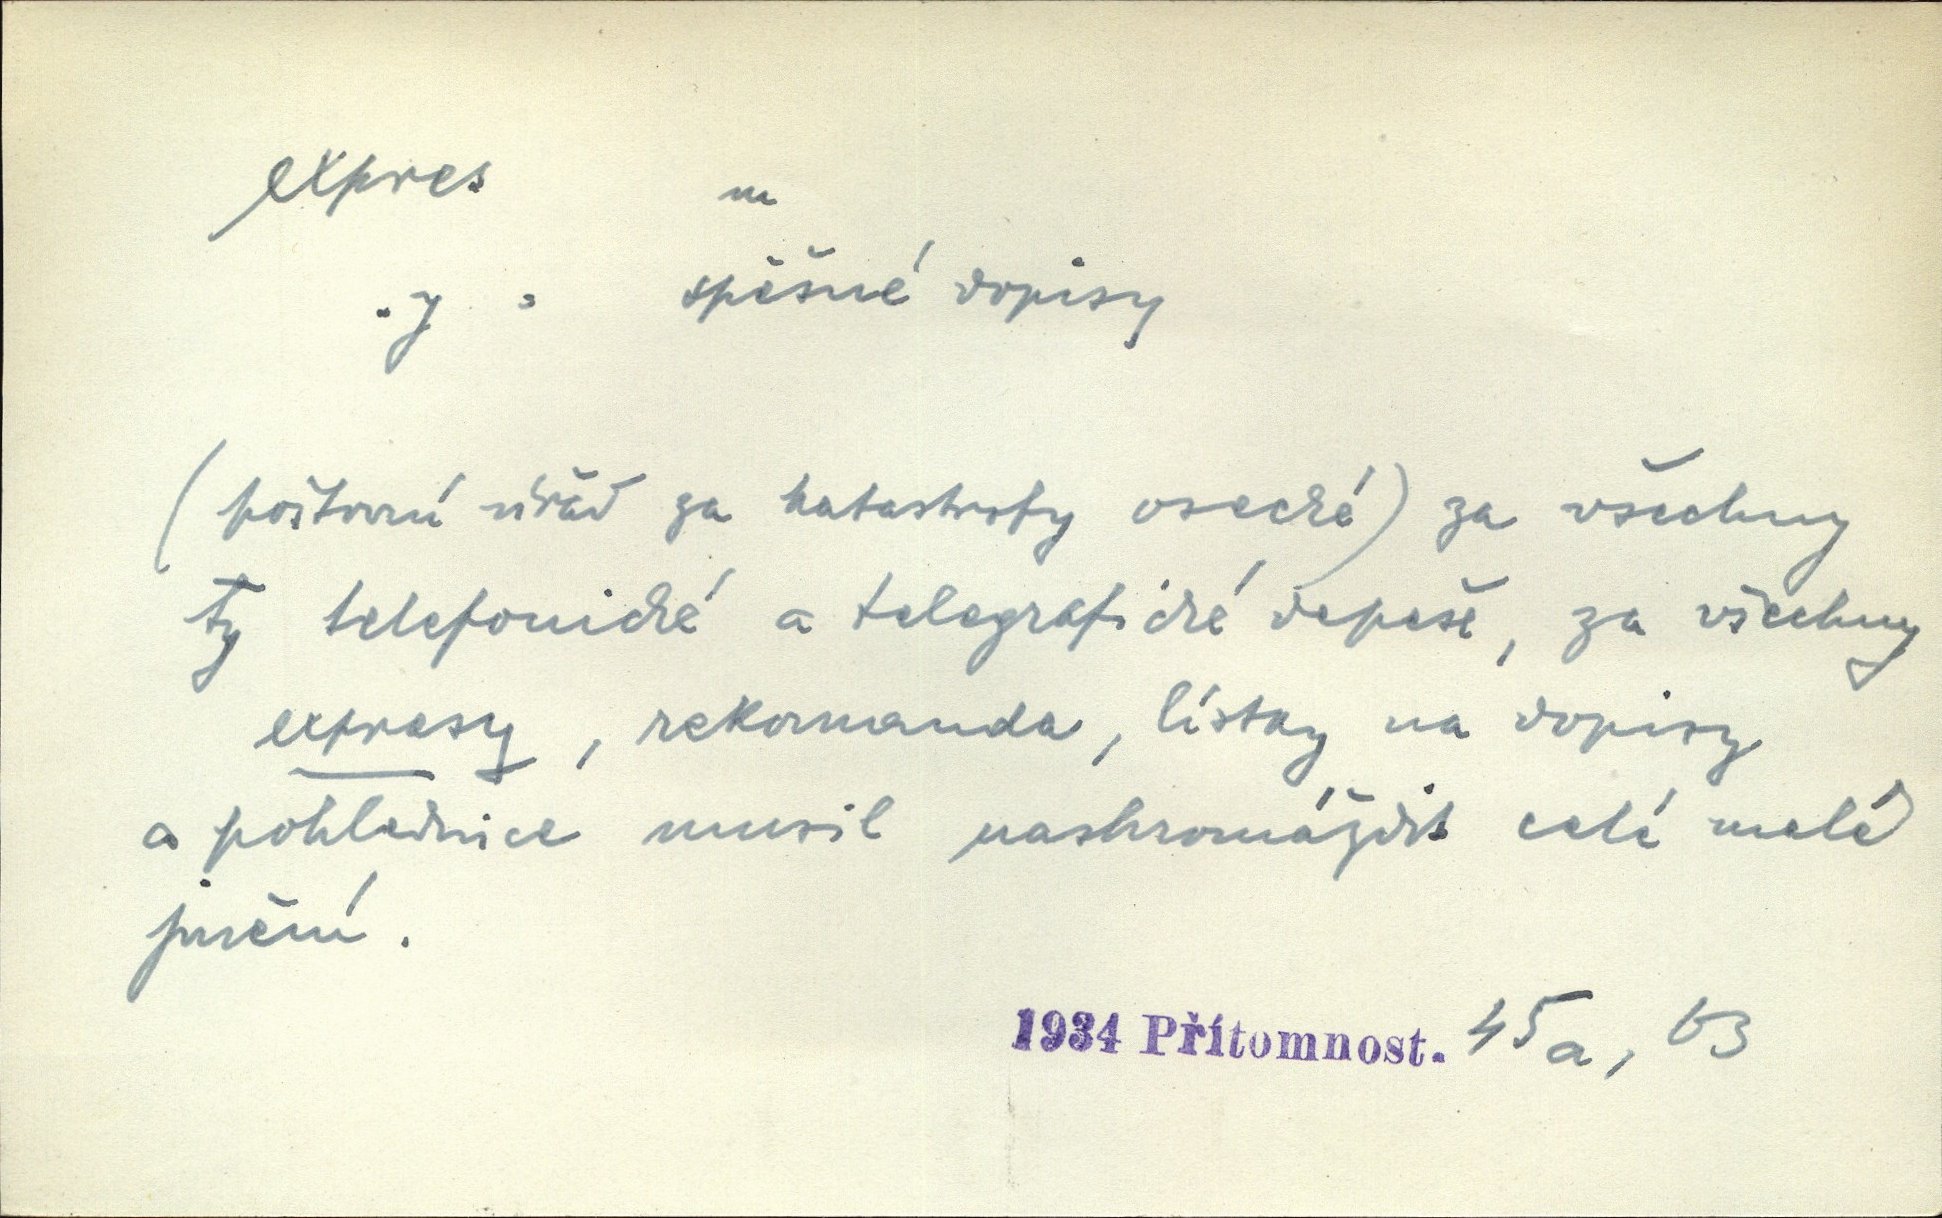 expres m
.y : spěšné dopisy
(poštovní úřad za katastrofy osecké) za všechny
ty telefonické a telegrafické depeše, za všechny
expresy, rekomanda, lístky na dopisy
a pohlednice musil nashromáždit celé malé
jmění.
1934 Přítomnost. 45a, 63